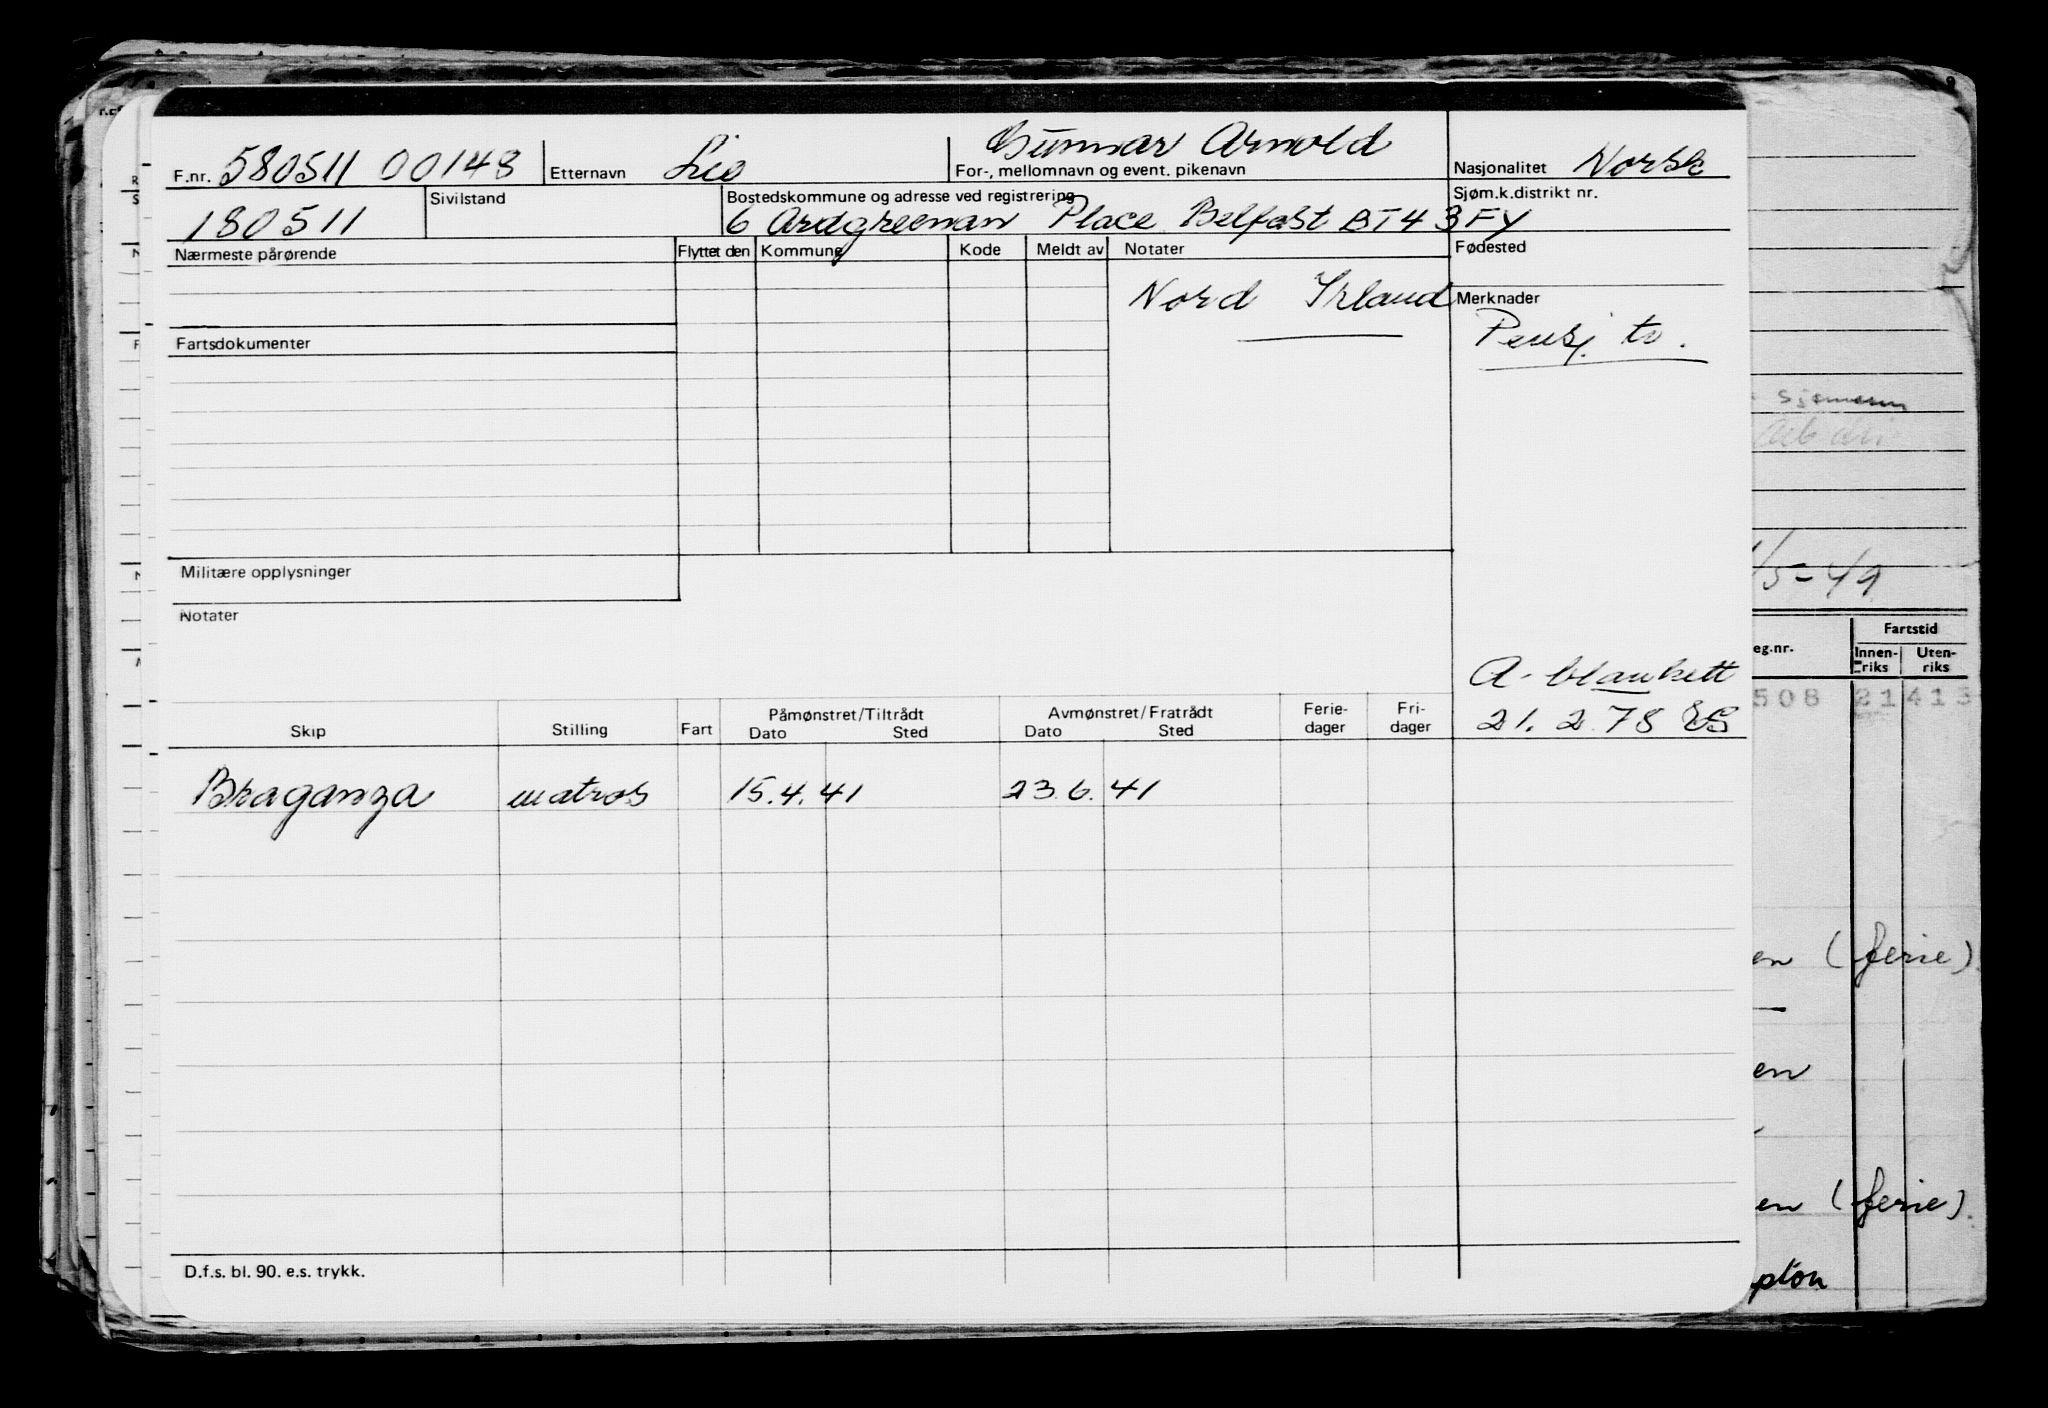 F.nr. 580511 00148 Etternavn Lie Gunnar Arnold For-, mellomnavn og event. pikenavn Nasjonalitet Norsk
180511 Sivilstand Bostedskommune og adresse ved registrering 6 Ardgreenan Place Belfast BT4 3FY Sjøm.k.distrikt nr.
Nærmeste pårørende Flyttet den Kommune Kode Meldt av Notater Fødested
Nord Irland Merknader
Fartsdokumenter Pensj. tr.
sjømenn
/5-49
Militære opplysninger
Notater
Fartstid
eg.nr. Innen-riks Uten-riks
A-blankett
508 21 413
Skip Stilling Fart Påmønstret/Tiltrådt Dato Sted Avmønstret/Fratrådt Dato Sted Ferie-dager Fri-dager 21.2.78 ES
Braganza matros 15.4.41 23.6.41
en (ferie)
en
en (ferie)
D.f.s. bl. 90. e.s. trykk.
pton